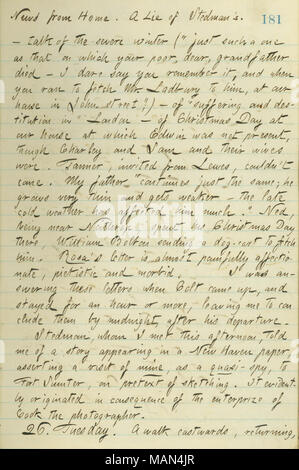 News from Home. A Lie of Stedman's.
181
— talk of the severe winter ("just such a one
as that in which your poor, dear, grandfather
died — I dare say you remember it, and when
you ran to fetch Mr Ladbury to him, at our
house in John street?) — of "suffering and des-
titution in" London — of Christmas Day at
our house at which Edwin was not present,
though Charley and Sam and their wives
were. Tanner, invited from Lewes, couldn't
come. My father "continues just the same; he
grows very thin and gets weaker — the late
cold weather has affected him much." Ned,
being near Neithrop, spent the Christmas Day
there, William Bolton sending a dog-cart to fetch
him. Rosa's letter is almost painfully affectio-
nate, pietistic and morbid. I was an-
swering these letters when Colt came up, and
stayed for an hour or more, leaving me to con-
clude them by midnight, after his departure.
Stedman, whom I met this afternoon, told
me of a story appearing in a New Haven paper,
asserting a visit of mine, as a quasi-spy, to
Fort Sumter, on pretext of sketching. It evident-
ly originated in consequence of the enterprize of
Cook the photographer.
26. Tuesday. A walk eastwards, returning,
alamy
Image ID: MAN4JR
www.alamy.com